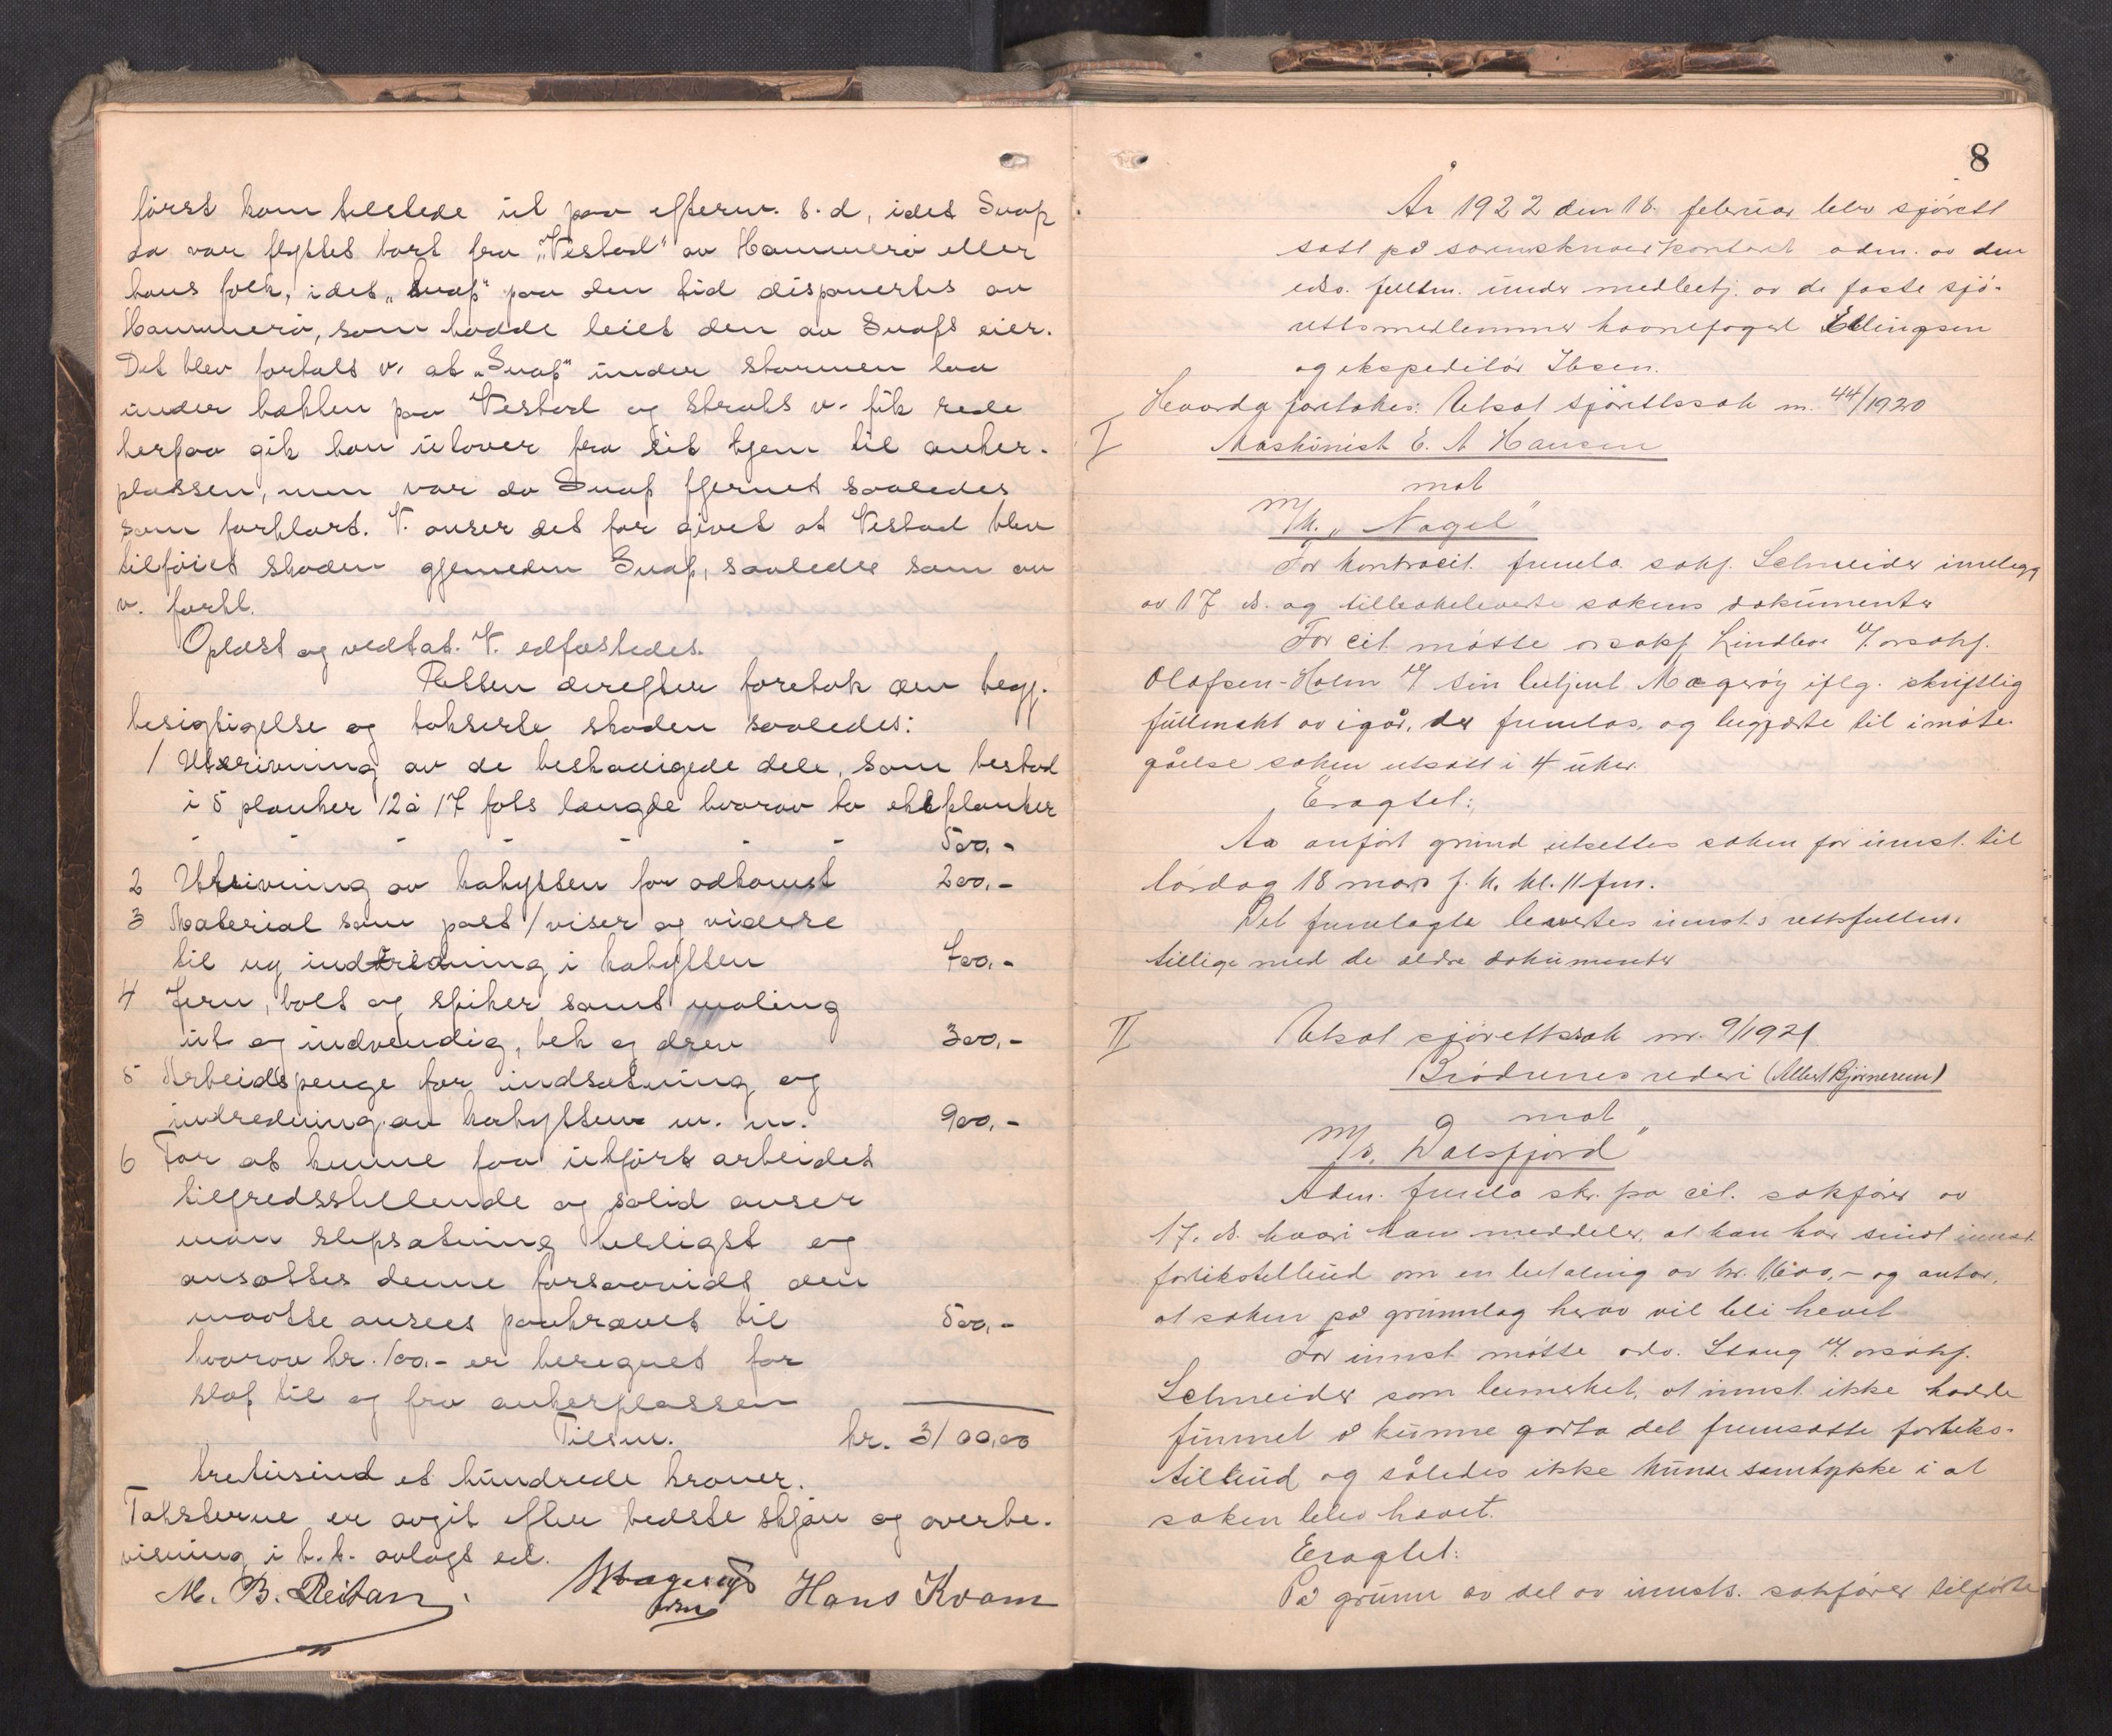 først kom tilstede ut paa efterm. s. d, idet Snap
da var flyttet bort fra "Vestad" av Hammerø eller
hans folk, idet "Snap" paa den tid disponertes av
Hammerø, som hadde leiet den av Snaps eier.
Det blev fortalt v. at "Snap" under stormen laa
under bakken paa Vestad og straks v. fik rede
herpaa gik han utover fra sit hjem til anker-
plassen, men var da Snap fjernet saaledes
som forklart. V. anser det for givet at Vestad blev
tilføiet skaden gjennem Snap, saaledes som av
v. forkl.
Oplæst og vedtat. V. edfæstedes.
Retten derefter foretok den begj.
besigtigelse og takserte skaden saaledes:
1 Utrivning av de beskadigede dele, som bestod
i 5 planker 12 à 17 fots længde hvorav to ekeplanker
- - - - - - 500,-
2 Utrivning av kahytten for adkomst 200,-
3 Material som post 1 viser og videre
til ny indredning i kahytten 700,-
4 Jern, bolt og spiker samt maling
ut og indvendig, bek og drev 300,-
5 Arbeidspenge for indsætning og
indredning av kahytten m. m. 900,-
6 For at kunne faa utført arbeidet
tilfredsstillende og solid anser
man slipsætning heldigst og
ansættes denne forsaavidt den
maatte ansees paakrævet til 500,-
hvorav kr. 100,- er beregnet for
slæp til og fra ankerplassen
Tilsm. kr. 3100,00
tretusind et hundrede kroner.
Taksterne er avgit efter bedste skjøn og overbe-
visning i h. t. avlagt ed.
M. B. Reitan. Hans Kvam
8
År 1922 den 18. februar blev sjørett
satt på sorenskriverkontoret adm. av den
edsv. fullm. under medbetj. av de faste sjø-
rettsmedlemmer havnefoged Ellingsen
og ekspeditør Ibsen.
Hvorda foretokes: Utsat sjørettssak nr. 44/1920
I Maskinist E. A Hansen
mot
M/k. "Nagel"
For kontracit. fremla sakf. Schneider innlegg
av 17 ds. og tilbakeleverte sakens dokumenter
For cit. møtte orsakf. Lindboe v/ orsakf.
Olafsen-Holm v/ sin betjent Magerøy iflg. skriftlig
fullmakt av igår, der fremlas, og begjærte til imøte-
gåelse saken utsatt i 4 uker.
Eragtet:
Av anført grund utsettes saken for innst. til
lørdag 18 mars f. k. kl. 11 fm.
Det fremlagte levertes innst.s rettsfullm.
tillige med de ældre dokumenter
II Utsat sjørettssak nr. 9/1921
Brødrenes rederi (Albert Bjørnerem)
mot
M/s. "Dalsfjord"
Adm. fremla skr. fra cit. sakfører av
17. ds. hvori han meddeler, at han har sendt innst.
forlikstilbud om en betaling av kr. 1600,- og antar,
at saken på grunnlag herav vil bli hevet
For innst. møtte adv. Stang v/ orsakf.
Schneider som bemerket, at innst. ikke hadde
funnet å kunne godta det fremsatte forliks-
tilbud og således ikke kunde samtykke i at
saken blev hævet.
Eragtet:
På grunn av det av innsts. sakfører tilførte